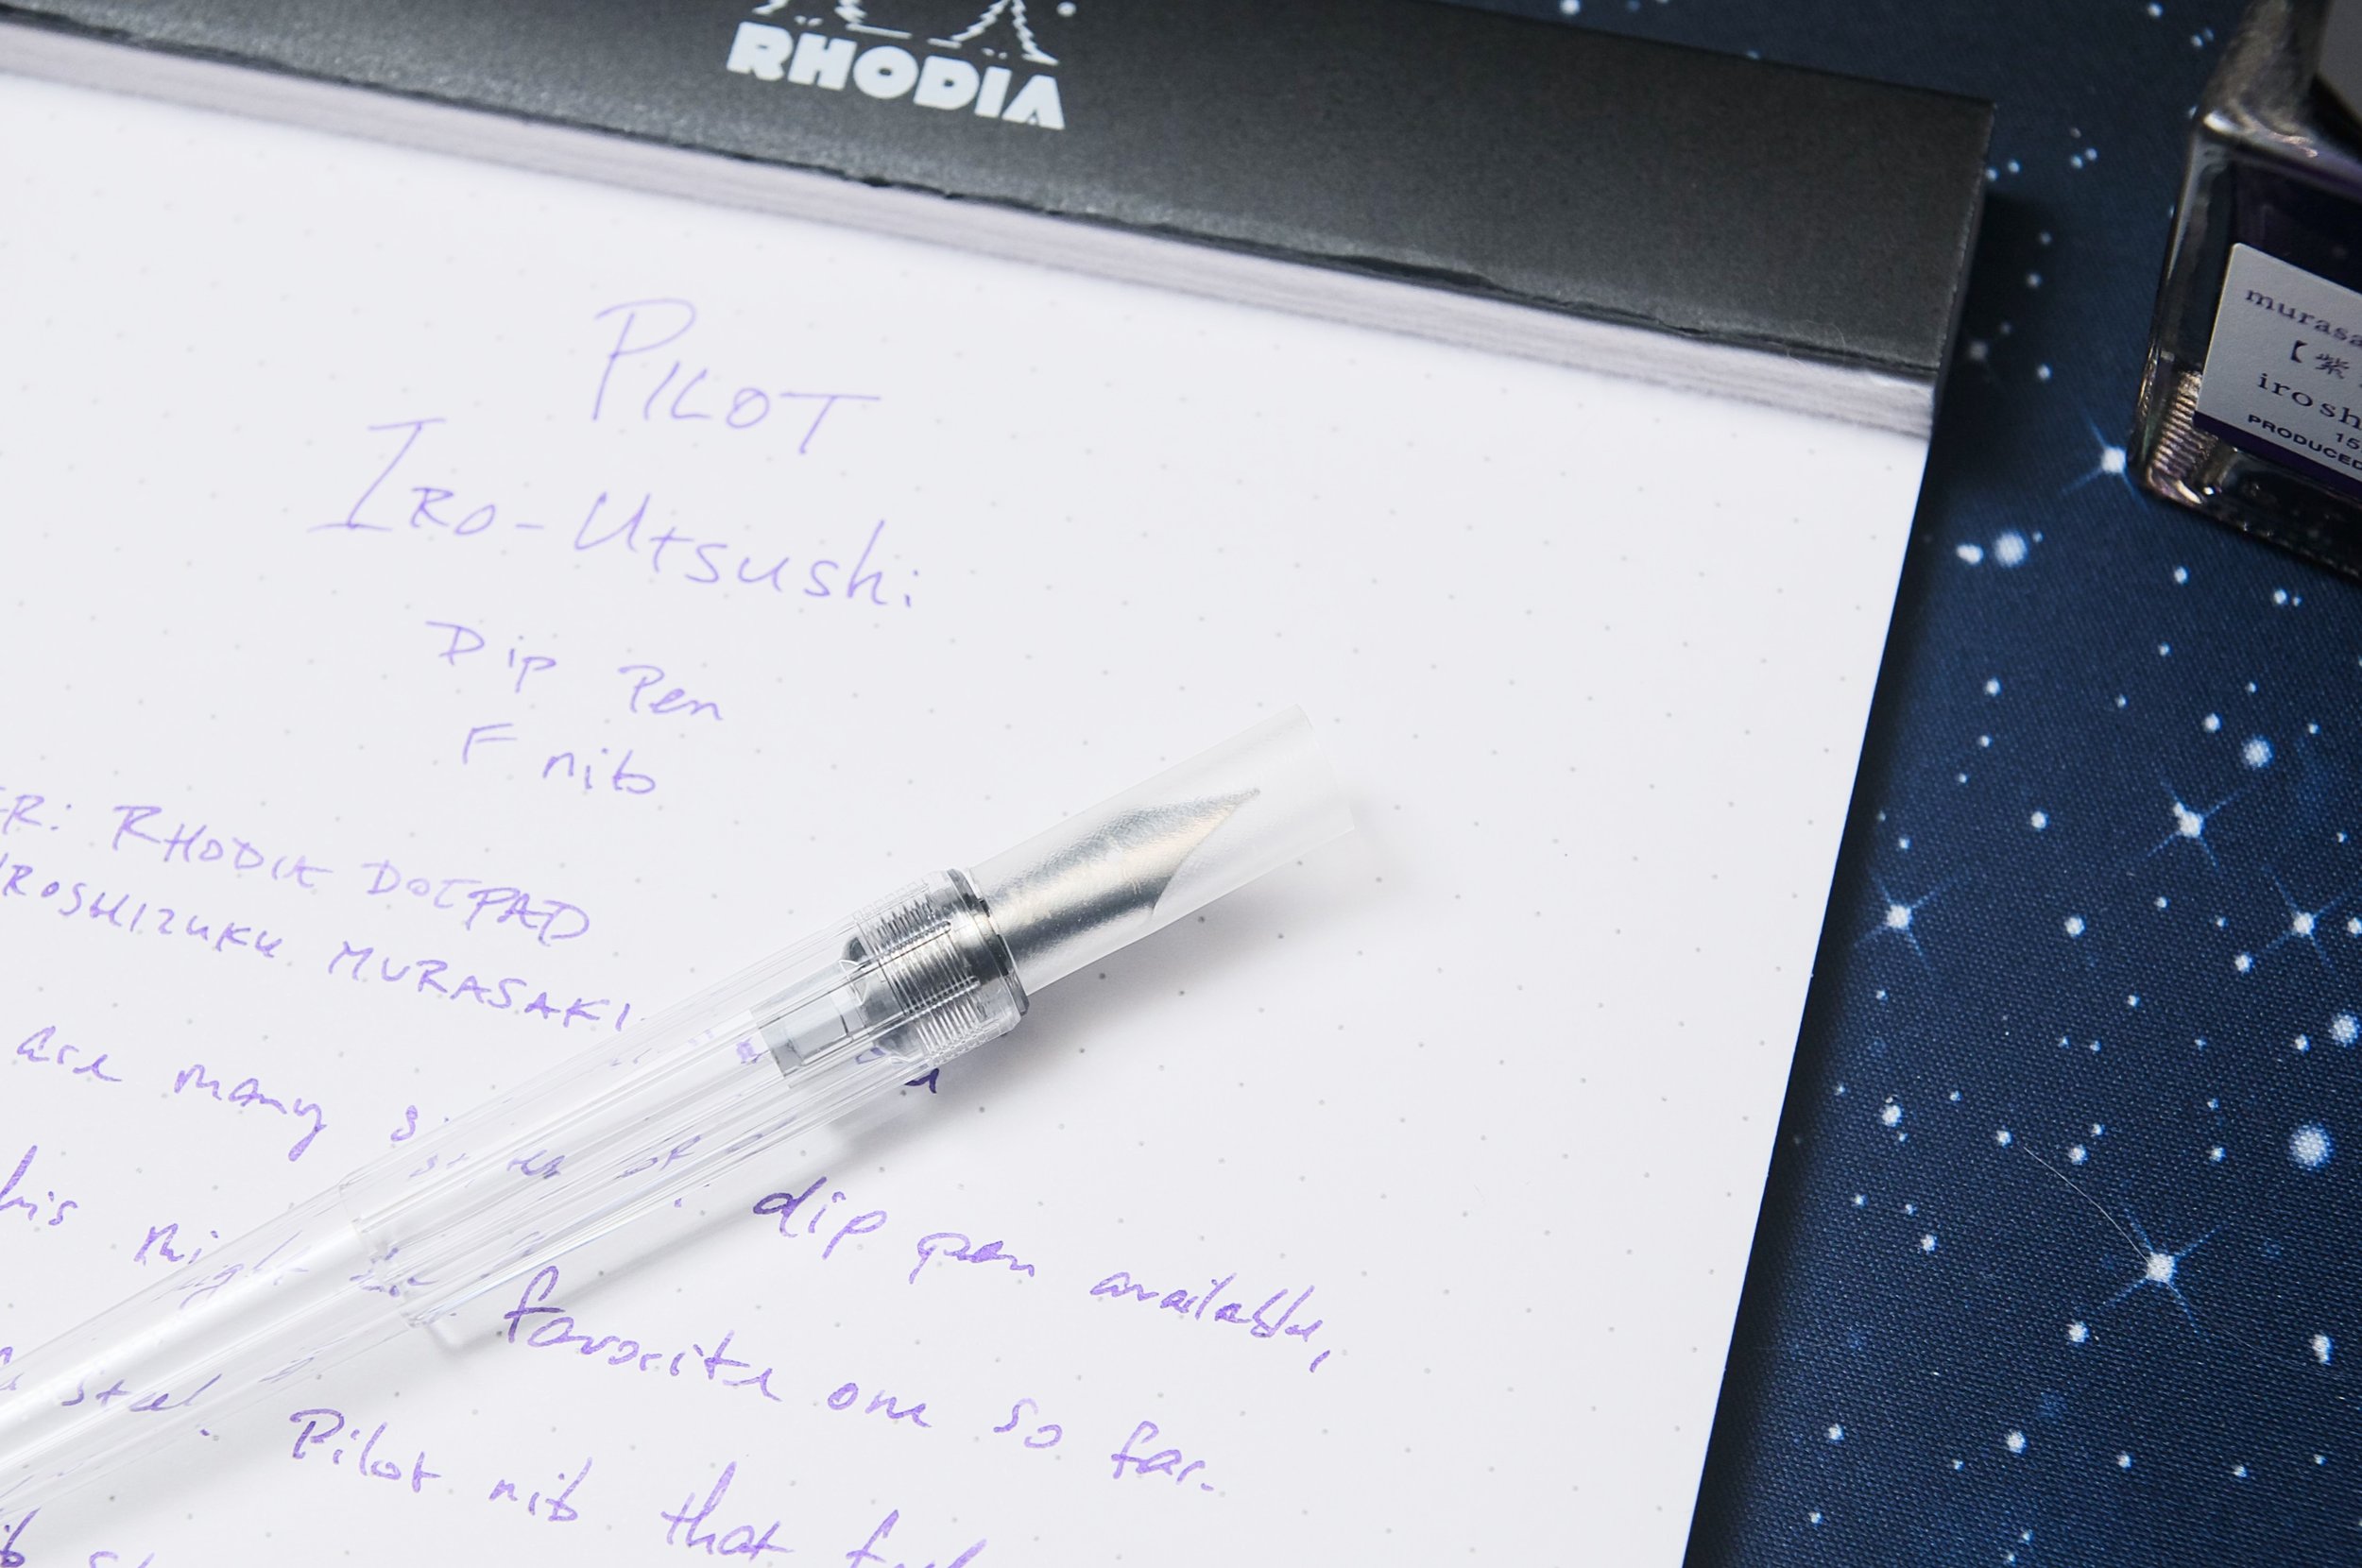 RHODIA
PILOT
IRO-Utsushi
Dip Pen
F nib
ER: RHODIA DOTPAD
IROSHIZUKU MURASAKI
are many dip pen available,
his might favorite one so far.
steel. Pilot nib that
murasa
【紫
irosh
15
PRODUCED